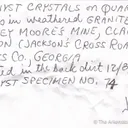 YST CRYSTALS on QUAR
D in weathered GRANITE
EY MOORE'S MINE, CLAR
ON (JACKSON'S CROSS ROAD
S CO. GEORGIA
ted in the back dirt 12/8
YST SPECIMEN NO. 74